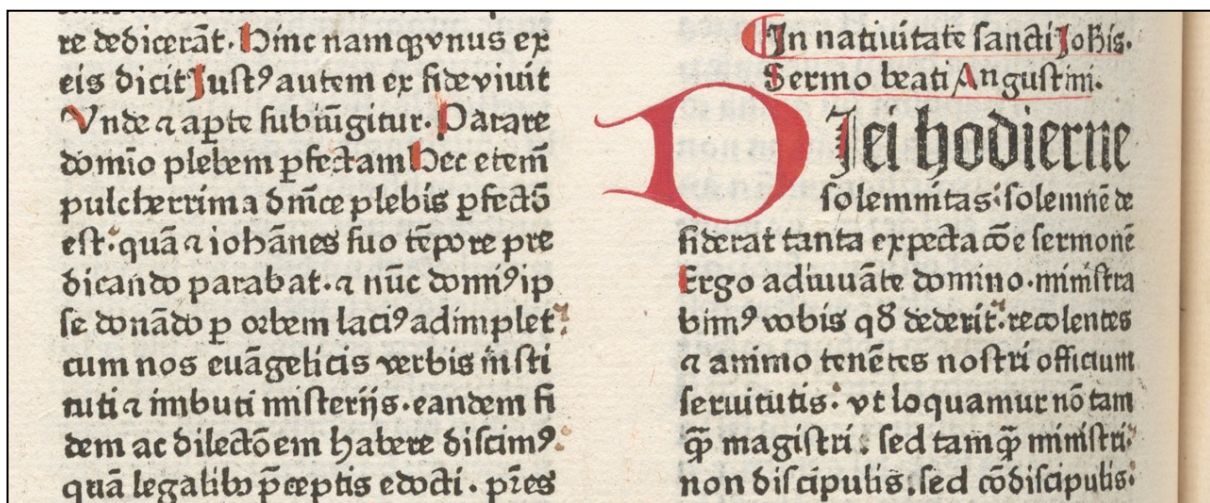 re dedicerāt. Hinc namqꝫ vnus ex
eis dicit Justꝰ autem ex fide viuit
Vnde ⁊ aꝑte subiūgitur. Parare
domīo plebem ꝑfectam Hec etem̄
pulcherrima dn̄ice plebis ꝑfectō
est. quā ⁊ iohānes suo tēpore pre
dicando parabat. ⁊ nūc domīꝰ ip
se donādo ꝑ orbem lacīꝰ adimplet.
cum nos euāgelicis verbis insti
tuti ⁊ imbuti misterijs. eandem fi
dem ac dilectōem habere discimꝰ.
quā legalibꝰ p̄ceptis edocti. pr̄es
In natiuitate sancti Johis.
Sermo beati Augustini.
DJei hodierne
solemnitas. solemnē de
siderat tanta expectacōe sermonē
Ergo adiuuāte domino. ministra
bimꝰ vobis qđ dederit. recolentes
⁊ animo tenētes nostri officium
seruitutis. vt loquamur nō tam
qꝫ̄ magistri: sed tamqꝫ̄ ministri.
non discipulis. sed cōdiscipulis.